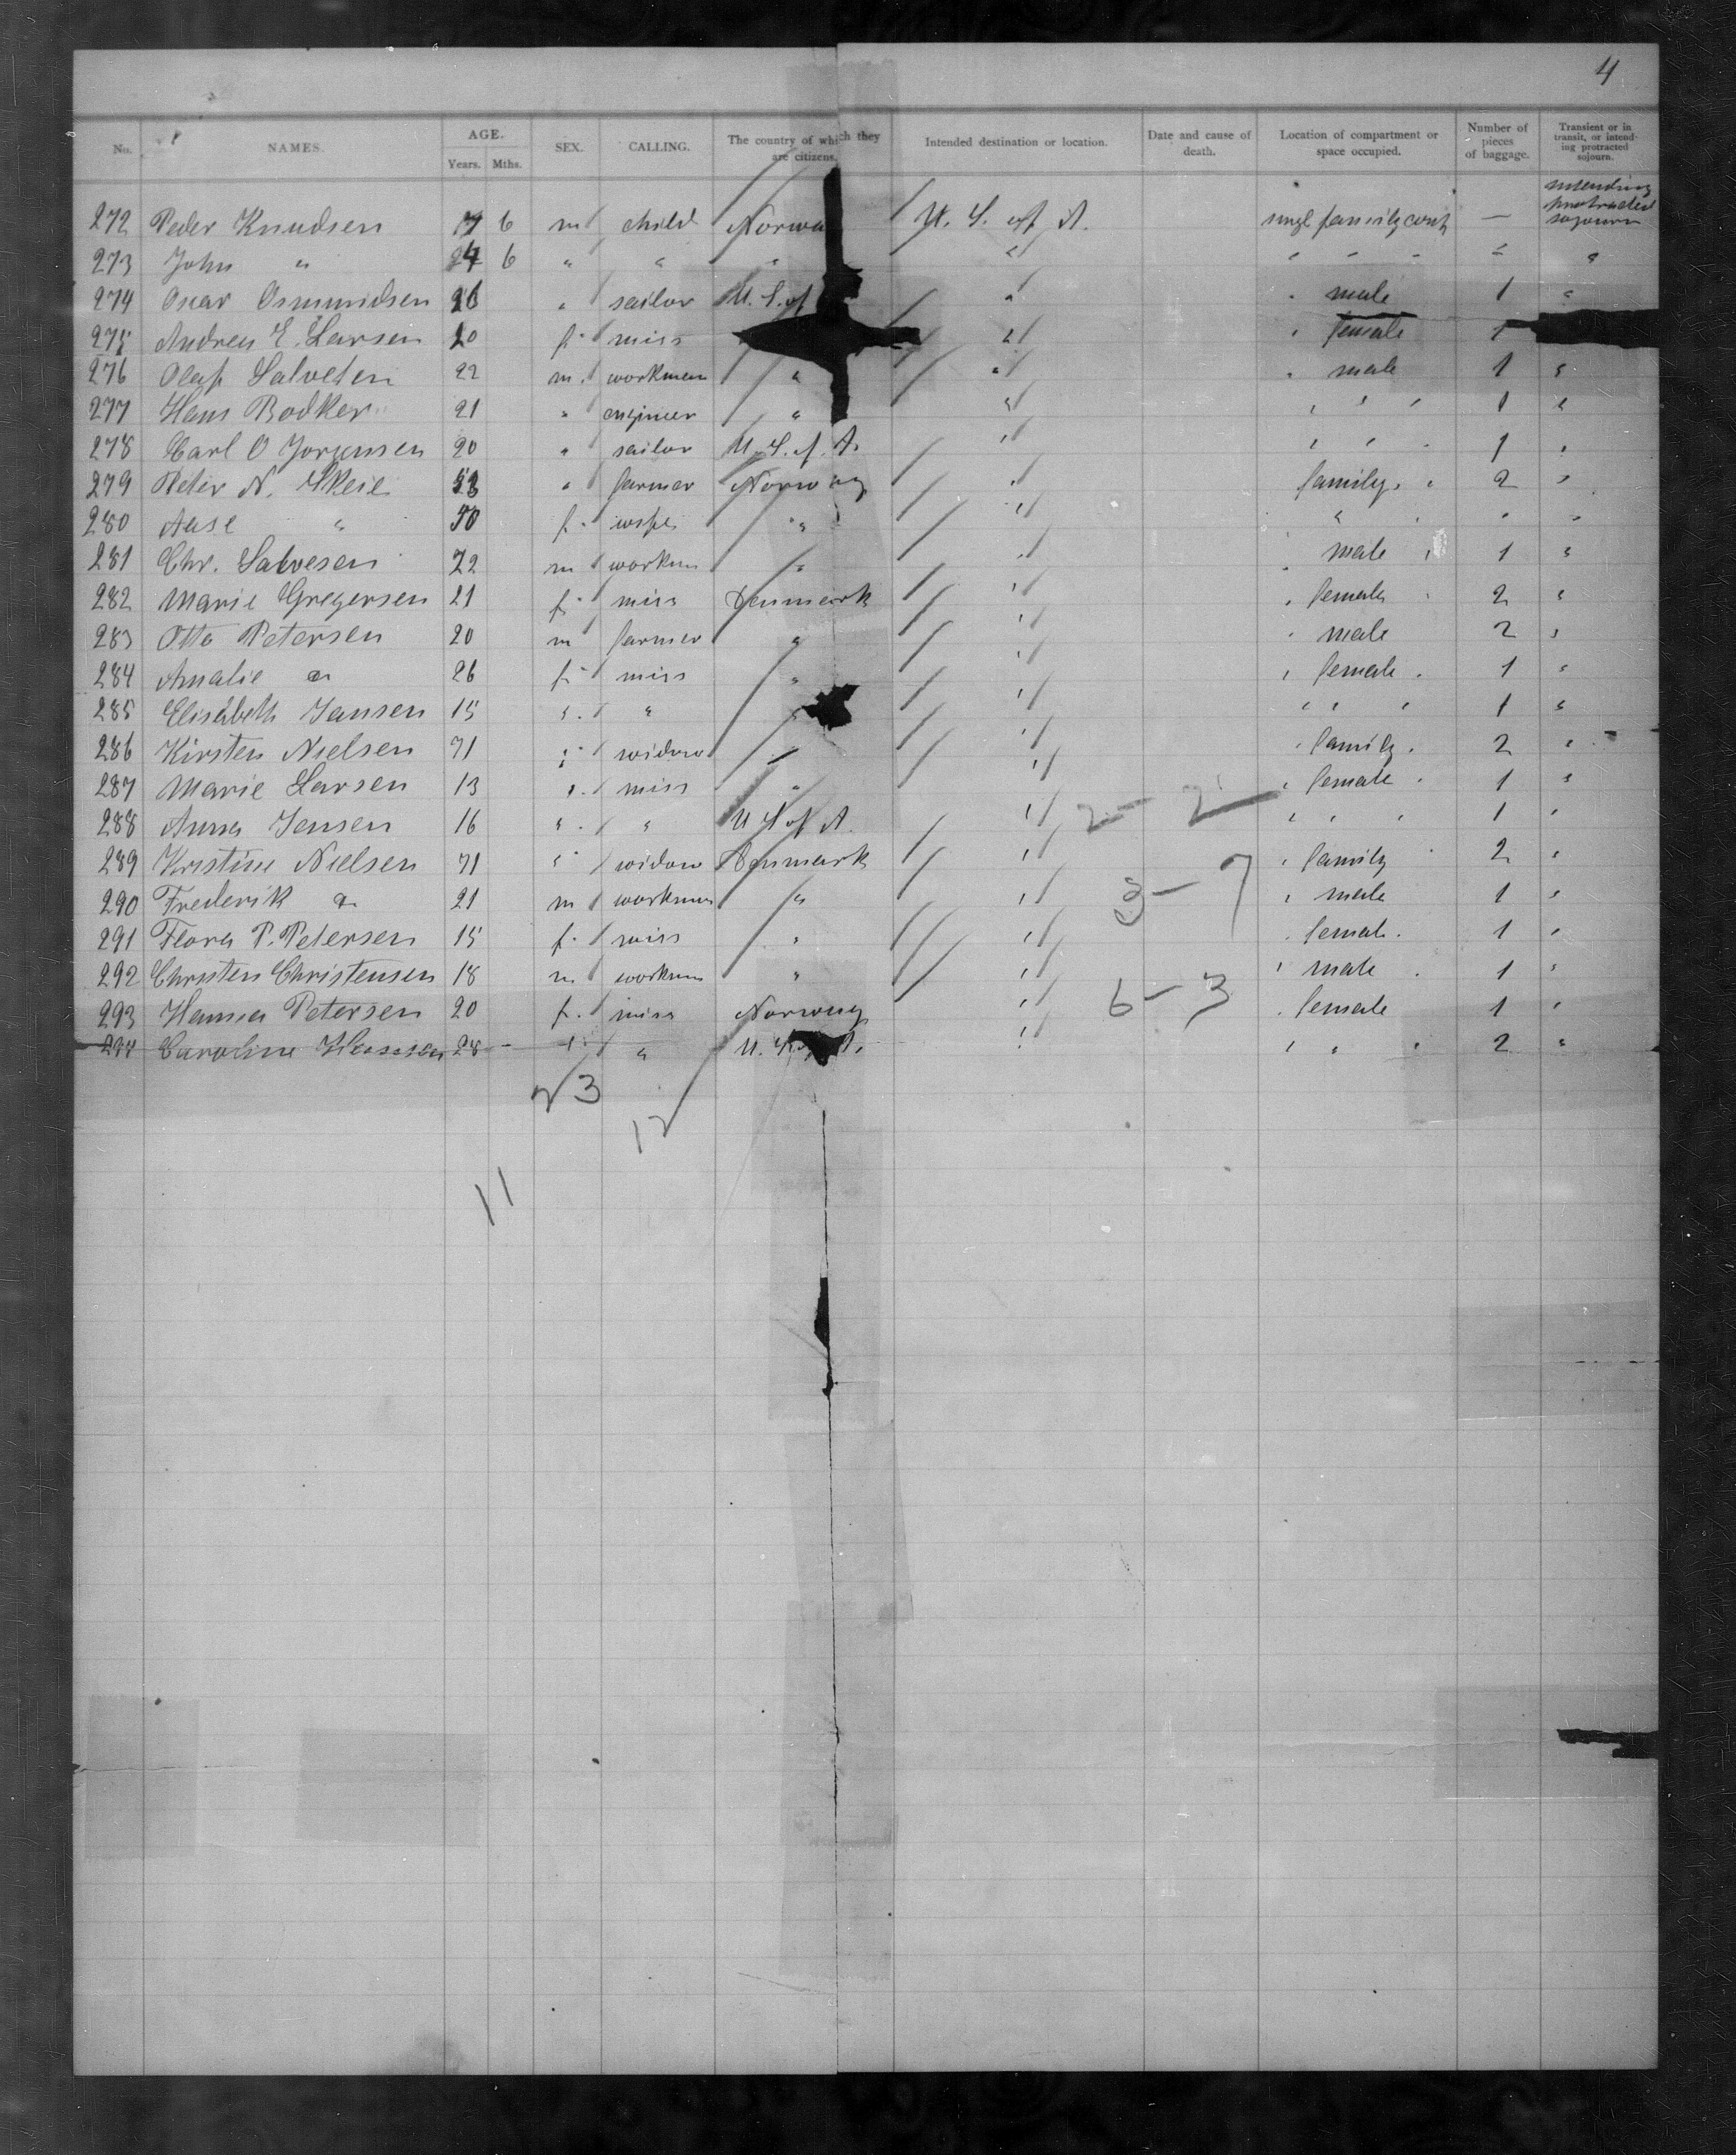 4
No. NAMES. AGE. Years. Mths. SEX. CALLING. The country of which they are citizens. Intended destination or location. Date and cause of death. Location of compartment or space occupied. Number of pieces of baggage. Transient or in transit, or intending protracted sojourn.
272 Peder Knudsen 6 m child Norwa U. S. of A. family — intending protracted sojourn
273 John " 6 " " " " " " " " "
274 Oscar Osmundsen 26 " sailor U. S. of " " male 1 "
275 Andrea E. Larsen 20 f. miss " " female 1
276 Olaf 22 m. workman " " " male 1 "
277 Hans Bodker 21 " engineer " " " " " 1 "
278 Carl O Jorgensen 20 " sailor U. S. of A. " " " " 1 "
279 Peter N. Skeie " farmer Norway " family " " 2 "
280 Aase " 50 f. wife " " " " " "
281 Chr. Salvesen 22 m workm " " " male " 1 "
282 Marie Gregersen 21 f. miss Denmark " " female " 2 "
283 Otto Petersen 20 m farmer " " " male 2 "
284 Amalie " 26 f. miss " " " female " 1 "
285 Elisabeth Jansen 15 " " " " " " " 1 "
286 Kirsten Nielsen 71 " widow " " " family " 2 "
287 Marie Larsen 13 " miss " " " female " 1 "
288 Anna Jensen 16 " " U S of A. " 2 - 2 " " " 1 "
289 Kristine Nielsen 71 " widow Denmark " " family " 2 "
290 Frederik " 21 m workman " " 3 - 7 " male 1 "
291 Flora P. Petersen 15 f. miss " " " female " 1 "
292 Christen Christensen 18 m. workm " " " male " 1 "
293 Hanna Petersen 20 f. miss Norway " 6 - 3 " female 1 "
294 Caroline Hansen 28 - " " U. S. of A. " " " " 2 "
23
12
11